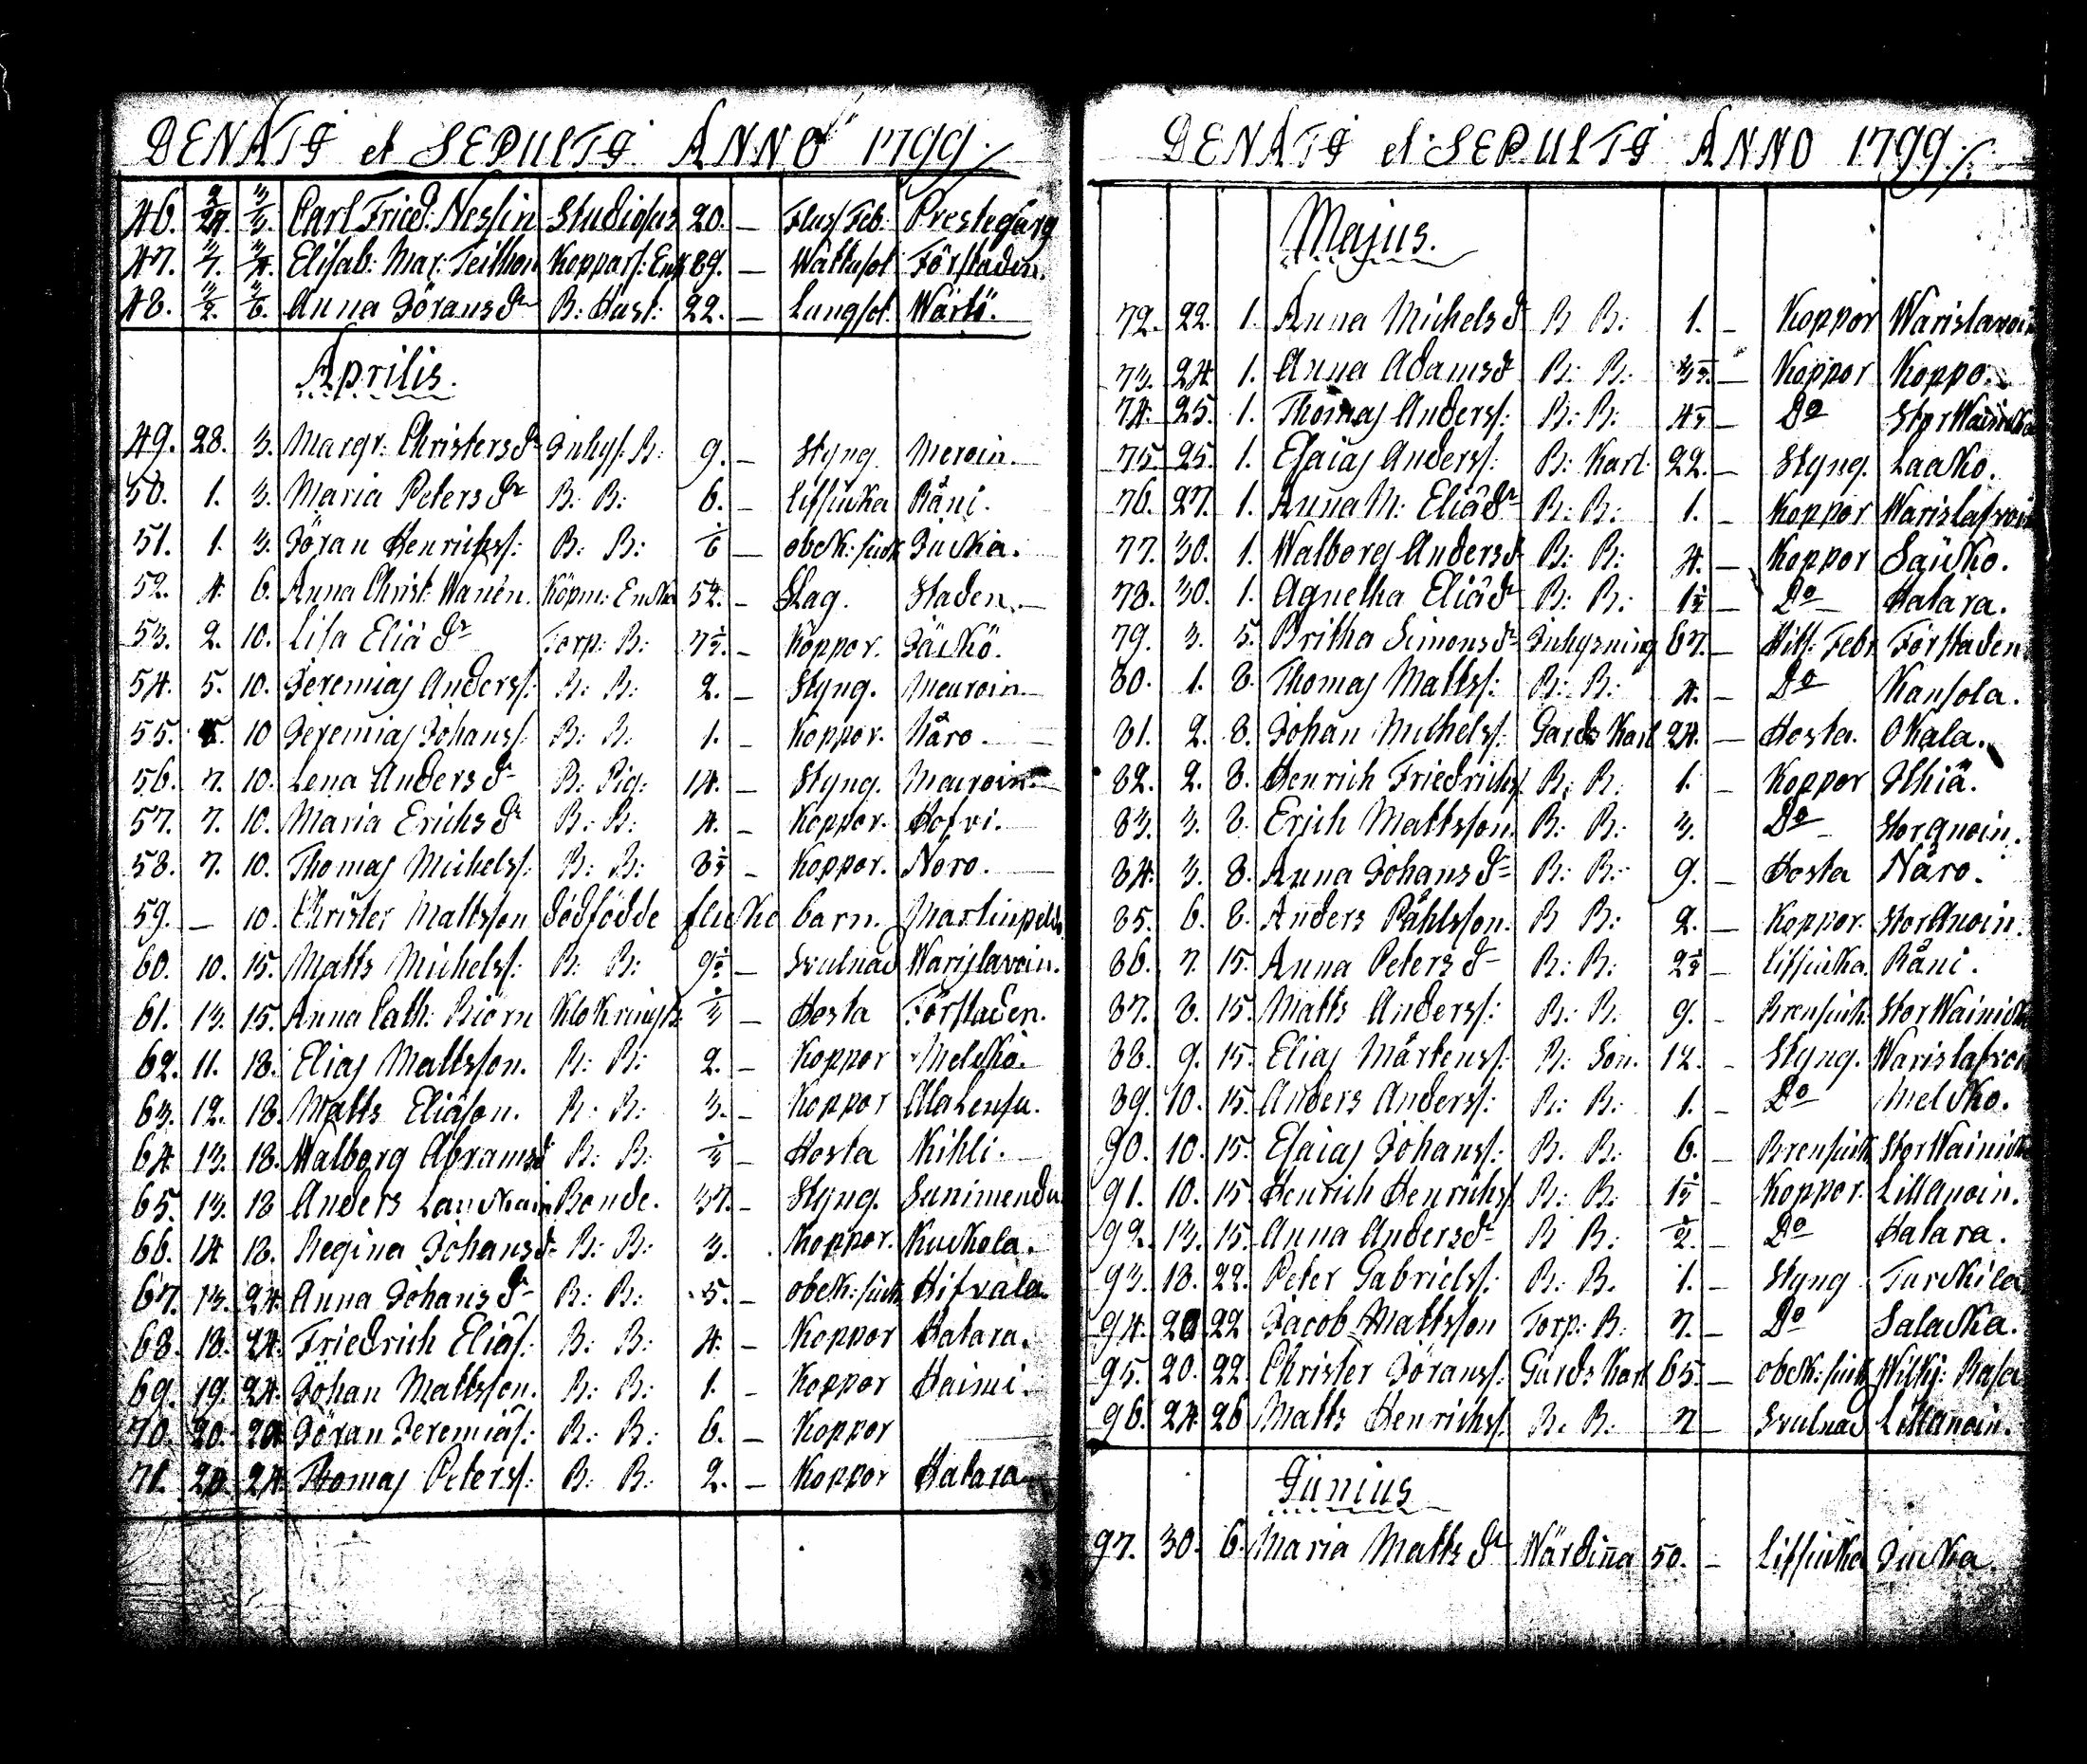 DENATI et SEPULTI ANNO 1799.
46. 2/24. 3/3. Carl Fried: Neslin Studiosus 20. — Flussfeb. Prestegårg
47. Elisab: Mar: Teitthon Koppars: Enk 89. — Wattusot Förstaden.
48. Anna Görans dr B: Hust: 22. — Lungsot. Wärtö.
Aprilis.
49. 28. 3. Margr: Christers dr Inhys: B: 9. — Styng.
50. 1. 3. Maria Peters dr B: B: 6. — Litsiucka Räni.
51. 1. 3. Göran Henrichss: B: B: — obek: siuk Jucka.
52. 4. 6. Anna Christ: Wanén. Köpm: Encka 54. — Slag. Staden. —
53. 2. 10. Lisa Eliä dr Torp: B: 7½. — Koppor. Jäckö.
54. 5. 10. Jeremias Anderss: B: B: 2. — Styng. Meuroin.
55. 10 Jeremias Johanss: B: B: 1. — Koppor. Näro. —
56. 7. 10. Lena Anders dr B: Pig: 14. — Styng. Mauroin.
57. 7. 10. Maria Erichs dr B: B: 4. — Koppor. Hofvi.
58. 7. 10. Thomas Michelss: B: B: — Koppor. Noro. —
59. — 10. Christer Mattsson dödfödde flicke barn.
60. 10. 15. Matts Michelss: B: B: 9½ — Svulnad Warislavoin.
61. 13. 15. Anna Cath: Biörn Klokrings B. ⅓ — Hosta Förstaden.
62. 11. 18. Elias Mattsson. B: B: 2. — Koppor Melcko.
63. 12. 18. Matts Eliäson. B: B: 3. — Koppor
64. 13. 18. Walborg Abrams dr B: B: ⅓ — Hosta Kihli. —
65. 13. 18 Anders Bonde. 37. — Styng.
66. 14 18. Regina Johans dr B: B: 3. Koppor. Kuckola.
67. 13. 24. Anna Johans dr B: B: 5. — obek: siuk Hifvala.
68. 18. 24. Friedrich Eliäs: B: B: 4. — Koppor Hatara.
69. 19. 24. Johan Mattsson. B: B: 1. — Koppor Haimi.
70. 20. 24. Göran Jeremiäs: B: B: 6. — Koppor
71. 20. 24. Thomas Peterss: B: B: 2. — Koppor Hatara
DENATI et SEPULTI ANNO 1799.
Majus.
72. 22. 1. Anna Michels dr B B: 1. — Koppor Warislavoin
73. 24. 1. Anna Adams dr B: B: — Koppor Koppo.
74. 25. 1. Thomas Anderss: B: B: — Do
75. 25. 1. Esaias Anderss: B: Karl 22. — Styng. Laako.
76. 27. 1. Anna M: Eliä dr B: B: 1. — Koppor Warislafvoin
77. 30. 1. Walborg Anders dr B: B: 4. — Koppor Säivko.
78. 30. 1. Agnetha Eliä dr B: B: 1½ — Do Hatara.
79. 3. 5. Britha Simons dr Inhysning 67. — Hits. Febr Förstaden
80. 1. 8. Thomas Mattss: B: B: 4. — Do Kansola.
81. 2. 8. Johan Michelss: Gards Karl 24. — Hosta. Okala.
82. 2. 8. Henrich Friedrichs: B: B: 1. — Koppor Ithiä.
83. 3. 8. Erich Mattsson. B: B: 3. Do Storqvoin.
84. 3. 8. Anna Johans dr B: B: 9. — Hosta Näro.
85. 6. 8. Anders Påhlsson. B B: 2. — Koppor. Storqvoin.
86. 7. 15. Anna Peters dr B: B: 2½ — Litsiucka. Räni.
87. 8. 15. Matts Anderss: B: B: 9. — Brensiuk: Stor Wainick
88. 9. 15. Elias Mårtenss: B: Son. 12. — Styng. Warislafvoin
89. 10. 15. Anders Anderss: B: B: 1. — Do Melcko.
90. 10. 15. Esaias Johanss: B: B: 6. — Brensiuk Stor Wainick
91. 10. 15 Henrich Henrichss B: B: 1½ — Koppor. Lillqvoin.
92. 13. 15. Anna Anders dr B B: ½. — Do Hatara.
93. 18. 22. Peter Gabrielss: B: B. 1. — Styng Turckila
94. 20 22 Jacob Mattsson Torp: B: 7. — Do Salacka.
95. 20. 22. Christer Göranss: Gards Karl 65. — obek: siuk Wilkj: Rasa
96. 24. 26 Matts Henrichss: B: B: 7 — Svulnad Lillqvoin.
Junius
97. 30. 6. Maria Matts dr Wärdina 50. — Litsiucka Jucka.